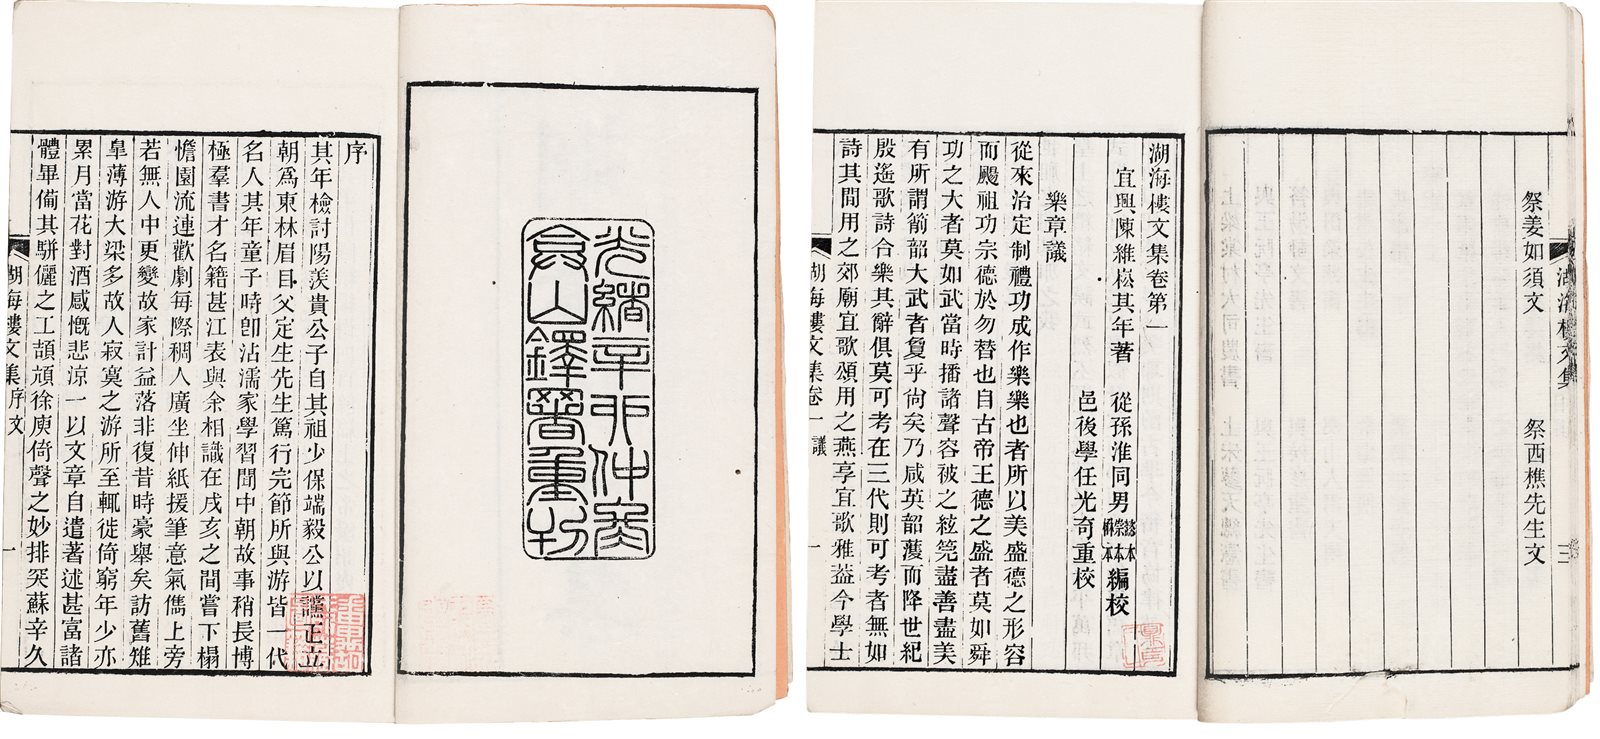 光緒辛卯仲冬
弇山鐸署重刊
序
其年檢討陽羨貴公子自其祖少保端毅公以讜正立
朝爲東林眉目父定生先生篤行完節所與游皆一代
名人其年童子時卽沾濡家學習聞中朝故事稍長博
極羣書才名籍甚江表與余相識在戌亥之間嘗下榻
憺園流連歡劇每際稠人廣坐伸紙援筆意氣儁上旁
若無人中更變故家計益落非復昔時豪舉矣訪舊雉
臯薄游大梁多故人寂寞之游所至輒徙倚窮年少亦
累月當花對酒感慨悲涼一以文章自遣著述甚富諸
體畢備其駢儷之工頡頏徐庾倚聲之妙排突蘇辛久
湖海樓文集序文
一
祭姜如須文
祭西樵先生文
湖海樓文集
三
湖海樓文集卷第一
宜興陳維崧其年著
從孫淮同男
懿本
崇本
編校
邑後學任光奇重校
樂章議
從來治定制禮功成作樂樂也者所以美盛德之形容
而颺祖功宗德於勿替也自古帝王德之盛者莫如舜
功之大者莫如武當時播諸聲容被之絃筦盡善盡美
有所謂箾韶大武者敻乎尙矣乃咸英韶濩而降世紀
殷遙歌詩合樂其辭俱莫可考在三代則可考者無如
詩其間用之郊廟宜歌頌用之燕享宜歌雅葢今學士
湖海樓文集卷一
議
一